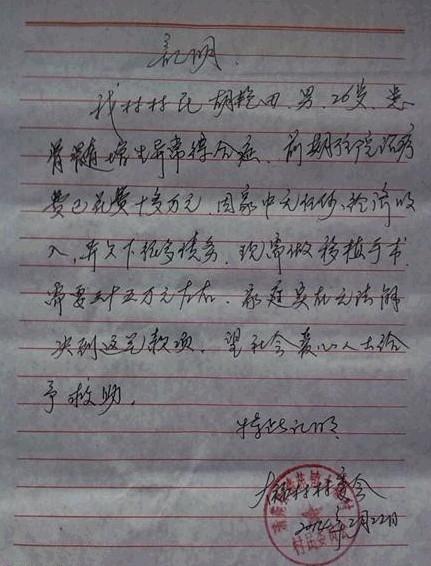 证明
我村村民胡艳田、男、26岁、患
骨髓增生异常综合症、前期住院治疗
费已花费十多万元、因家中无任何经济收
入、并欠下很多债务、现需做移植手术
需要三十五万元左右、家庭实在无法解
决到这笔款项、望社会爱心人士给
予救助。
特此证明
村村委会
2014年2月22日
村民委员会